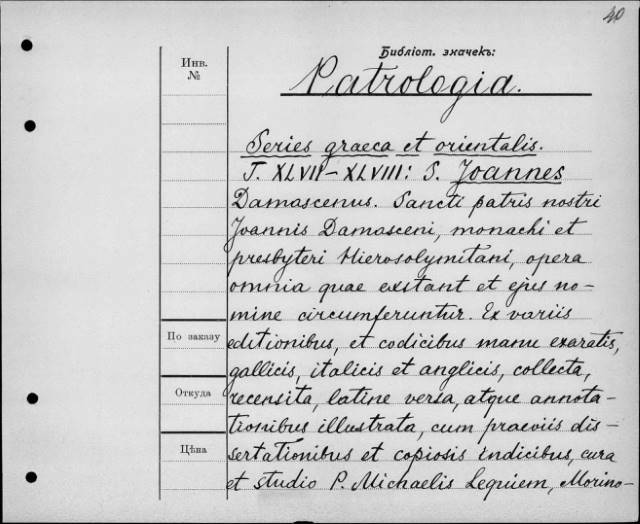 40
Библіот. значекъ:
Инв.
№
Patrologia.
Series graeca et orientalis.
T. XLVII–XLVIII: S. Joannes
Damascenus. Sancti patris nostri
Joannis Damasceni, monachi et
presbyteri Hierosolymitani, opera
omnia quae exstant et ejus no-
mine circumferuntur. Ex variis
По заказу
editionibus, et codicibus manu exaratis,
gallicis, italicis et anglicis, collecta,
Откуда
recensita, latine versa, atque annota-
tionibus illustrata, cum praeviis dis-
Цѣна
sertationibus et copiosis indicibus, cura
et studio P. Michaelis Lequiem, Morino-